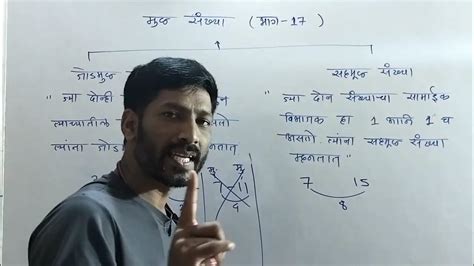 मुळ संख्या (भाग-17)
जोडमुळ
" ज्या दोन्ही
त्यांच्यातील
त्यांना जोड
मु मु
7 11
4
सहमुळ संख्या
" ज्या दोन संख्याचा सामाईक
विभाजक हा 1 आणि 1 च
असतो त्यांना सहमुळ संख्या
म्हणतात "
7 15
8